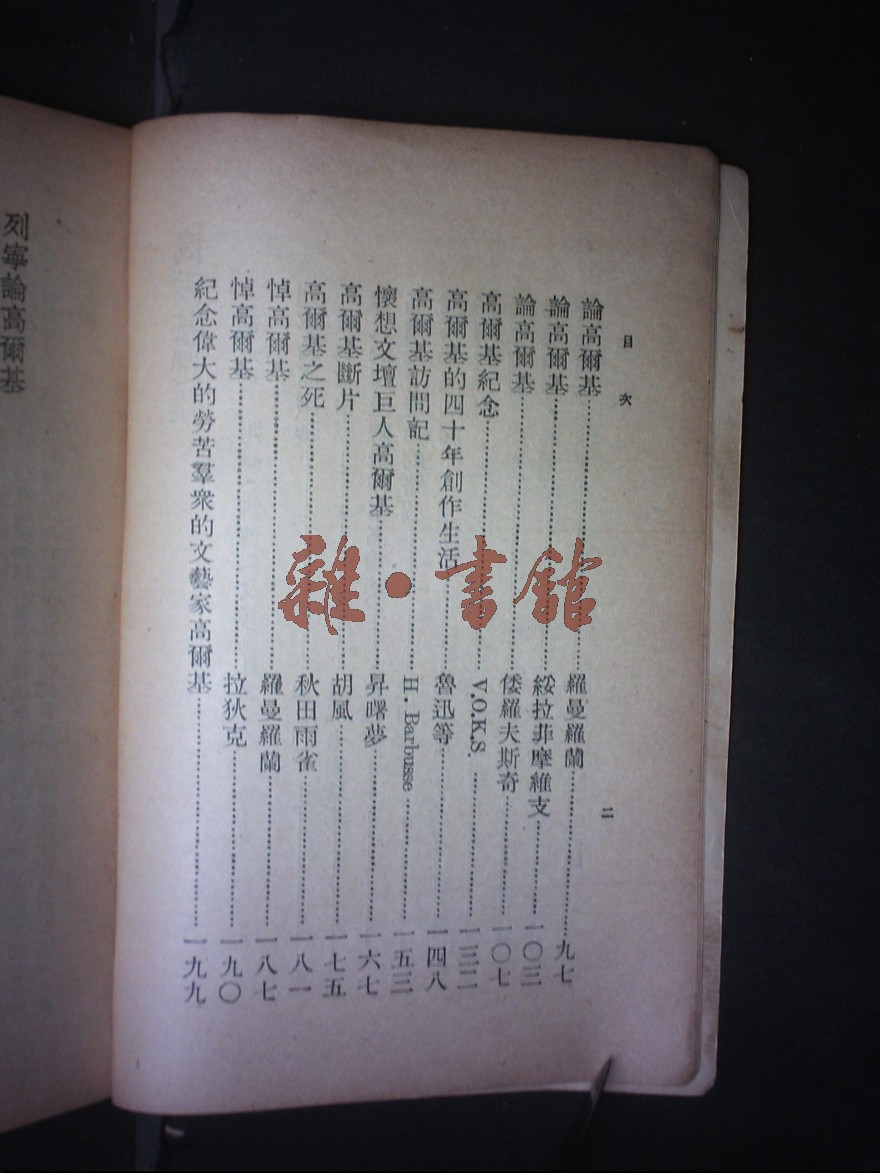 目次
二
論高爾基……羅曼羅蘭……九七
論高爾基……綏拉菲摩維支……一〇三
論高爾基……倭羅夫斯奇……一〇七
高爾基紀念……V.O.K.S.……一三二
高爾基的四十年創作生活……魯迅等……一四八
高爾基訪問記……H. Barbusse……一五三
懷想文壇巨人高爾基……昇曙夢……一六七
高爾基斷片……胡風……一七五
高爾基之死……秋田雨雀……一八一
悼高爾基……羅曼羅蘭……一八七
悼高爾基……拉狄克……一九〇
紀念偉大的勞苦羣衆的文藝家高爾基……一九九
列寧論高爾基
雜•書館